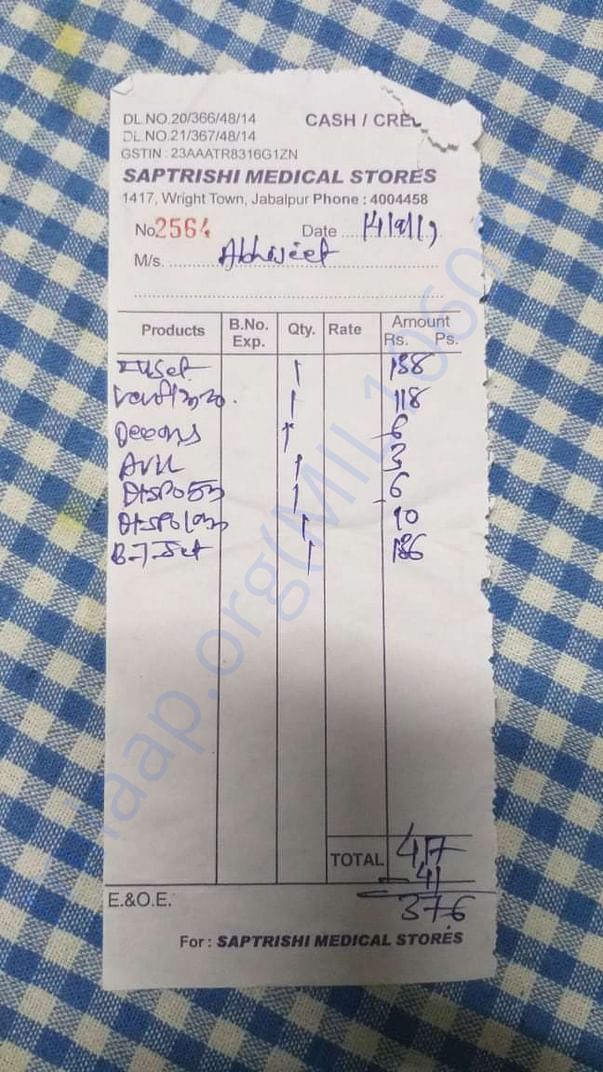 DL.NO.20/366/48/14 CASH / CRE
DL.NO.21/367/48/14
GSTIN : 23AAATR8316G1ZN
SAPTRISHI MEDICAL STORES
1417, Wright Town, Jabalpur Phone : 4004458
No.2564 Date
M/s. Abhijeet
Products B.No. Exp. Qty. Rate Amount Rs. Ps.
1 138
1 118
1 6
Avil 1 3
1 6
1 10
B.T.Set 1
TOTAL 417
41
376
E.&O.E.
For : SAPTRISHI MEDICAL STORES
haap.org(MIL1060